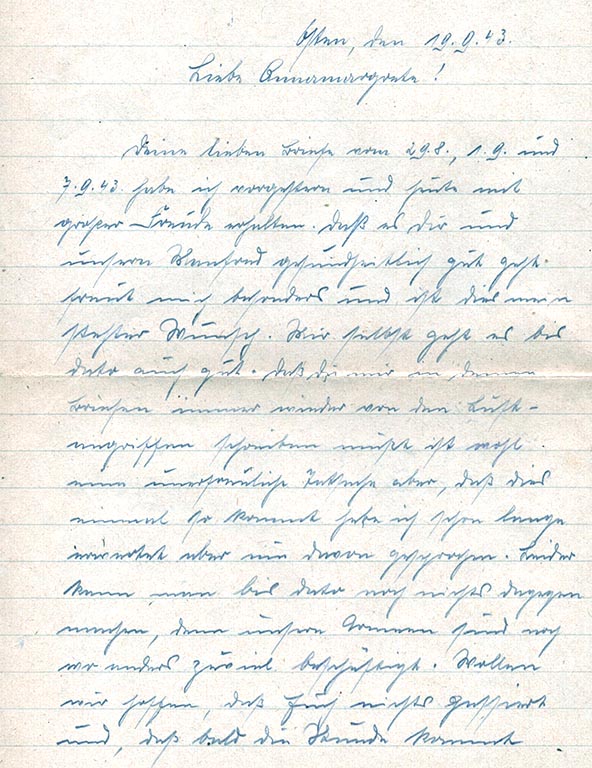 Osten, den 19.9.43.
Liebe Annamargrete!
Deine lieben Briefe vom 29.8., 1.9. und
7.9.43. habe ich vorgestern und heute mit
großer Freude erhalten. Daß es Dir und
unsern Manfred gesundheitlich gut geht
freut mich besonders und ist dies mein
stester Wunsch. Mir selbst geht es bis
dato auch gut. Daß Du mir in Deinen
Briefen immer wieder von den Luft-
angriffen schreiben mußt ist wohl
eine unerfreuliche Tatsache aber, daß dies
einmal so kommt habe ich schon lange
erwartet aber nie davon gesprochen. Leider
kann man bis dato noch nichts dagegen
machen, denn unsere Armeen sind noch
wo anders zuviel beschäftigt. Wollen
wir hoffen, daß Euch nichts passiert
und, daß bald die Stunde kommt